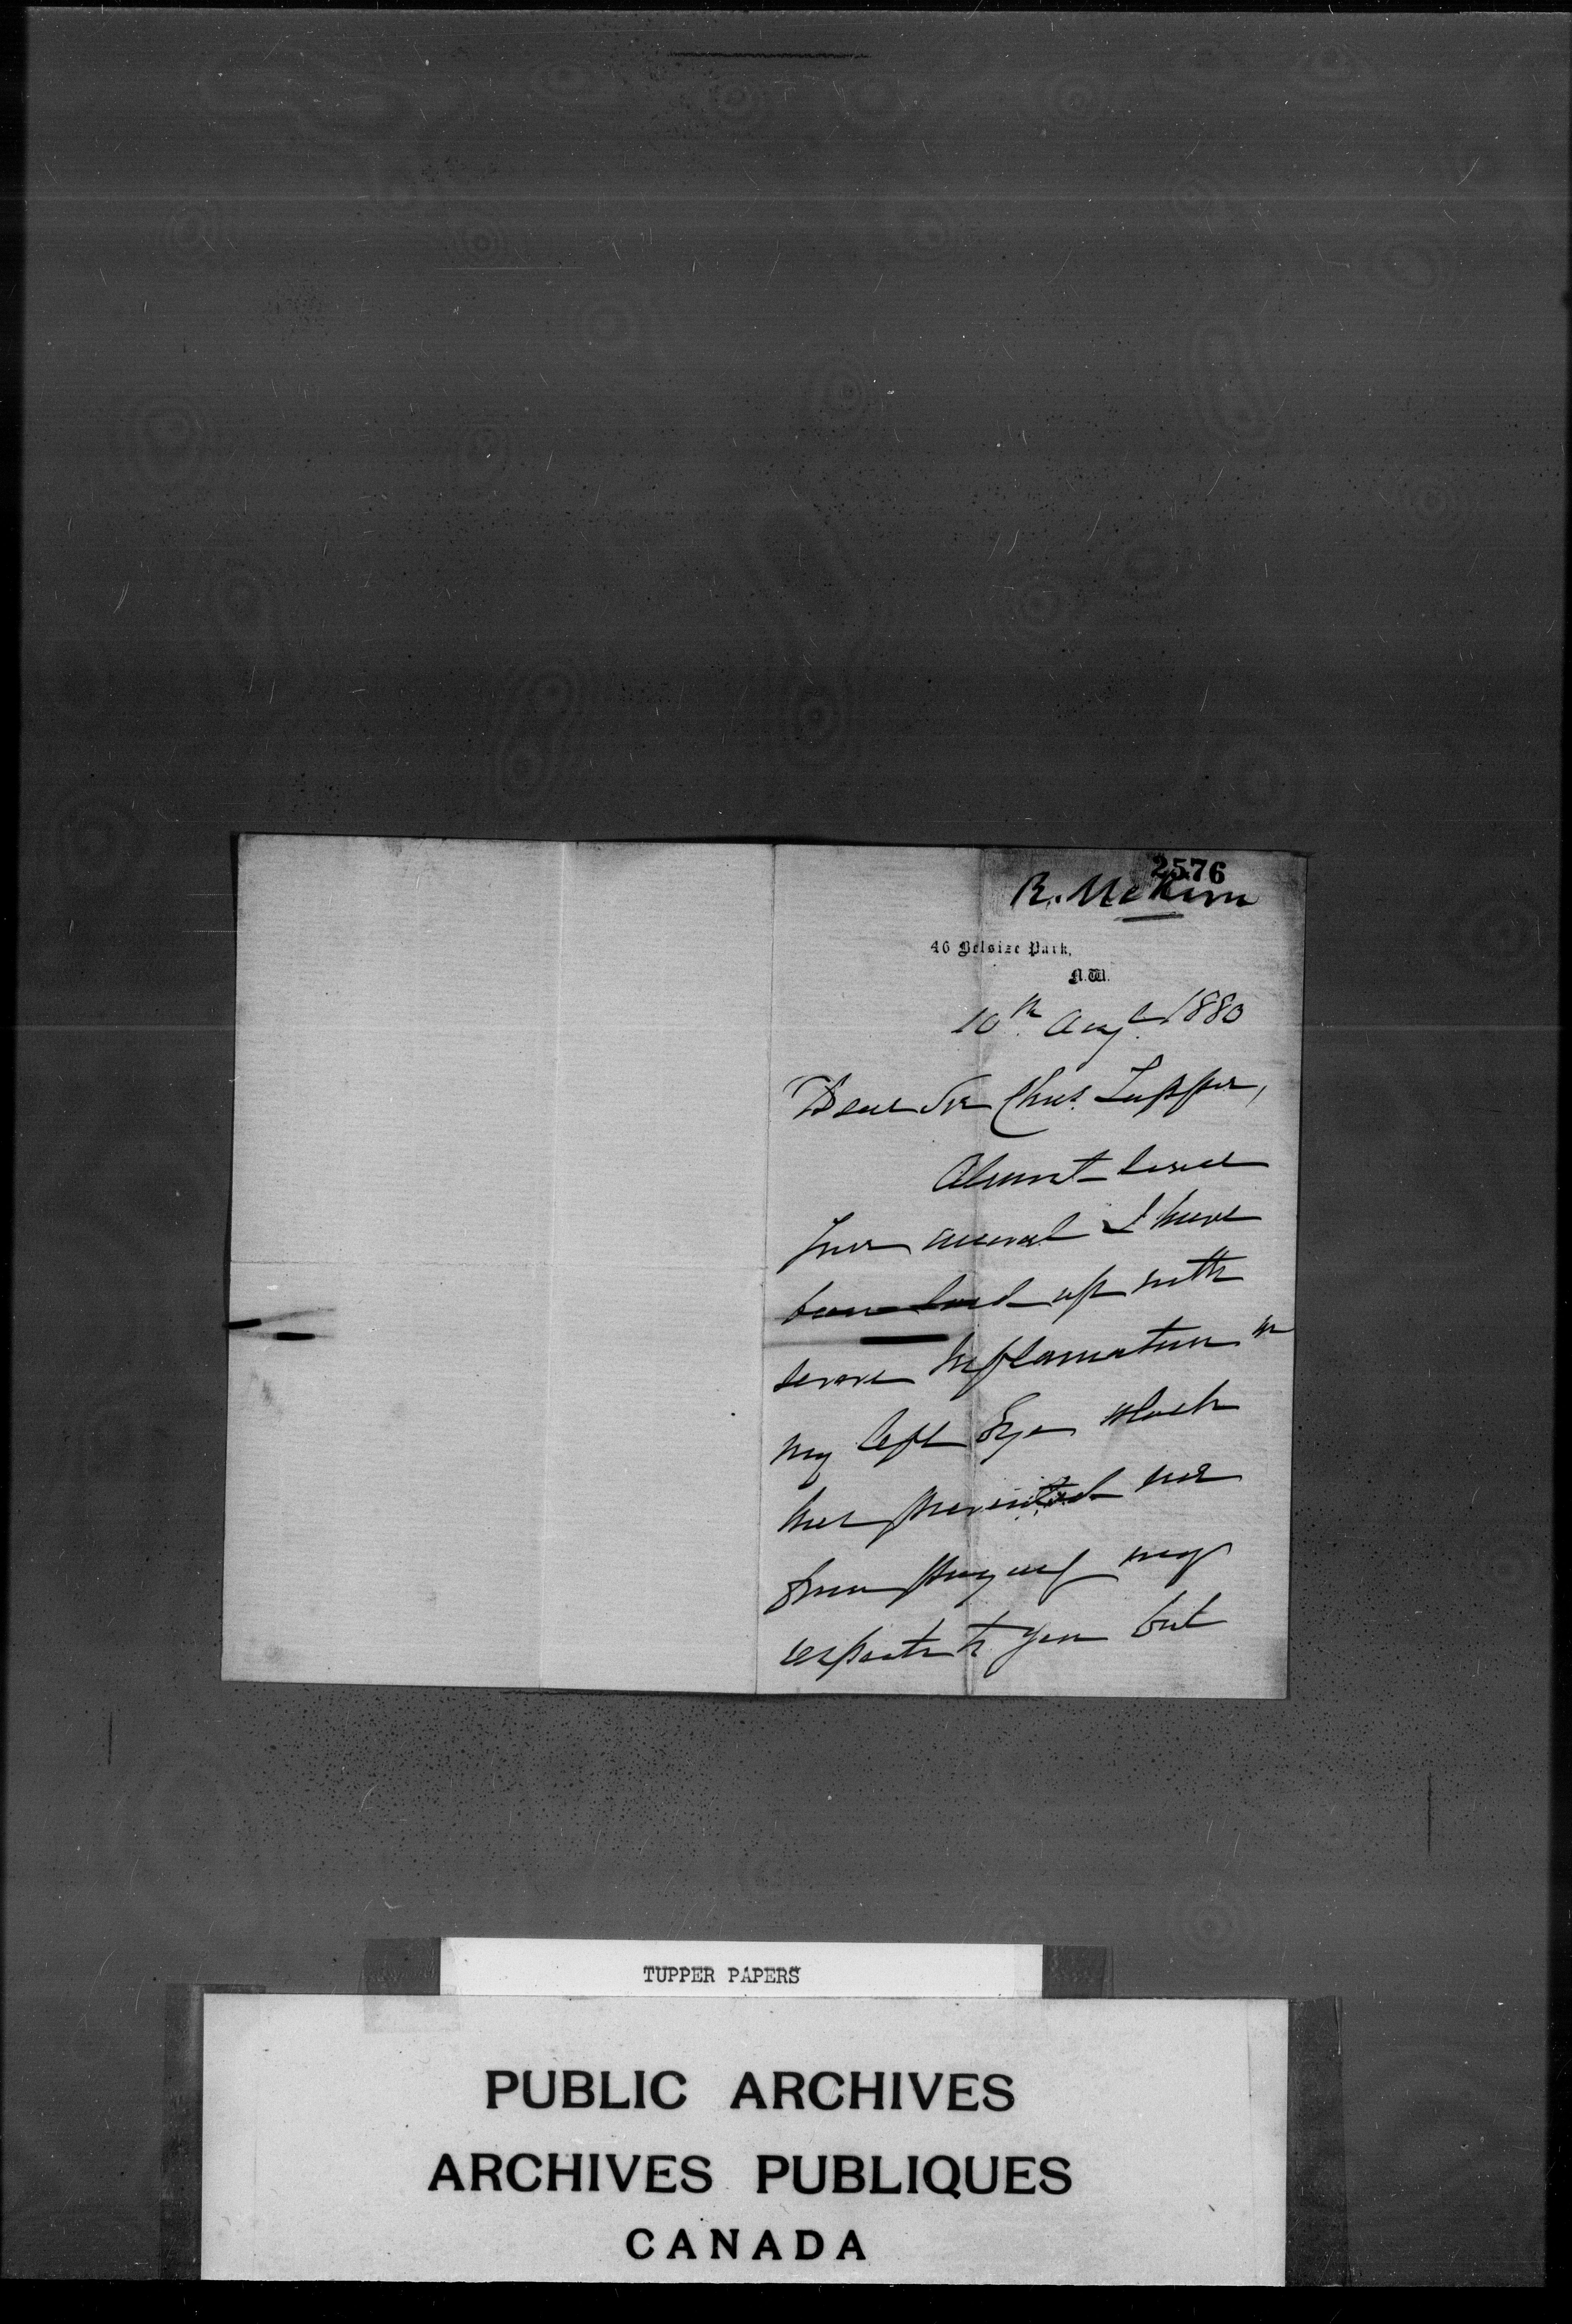 2576
R. McKim
46 Belsize Park,
N.W.
10th Augt 1880
Dear Sir Chas. Tupper,
Almost since
your arrival I have
been laid up with
severe Inflamation in
my left Eye which
has prevented me
from paying my
respects to you but
TUPPER PAPERS
PUBLIC ARCHIVES
ARCHIVES PUBLIQUES
CANADA